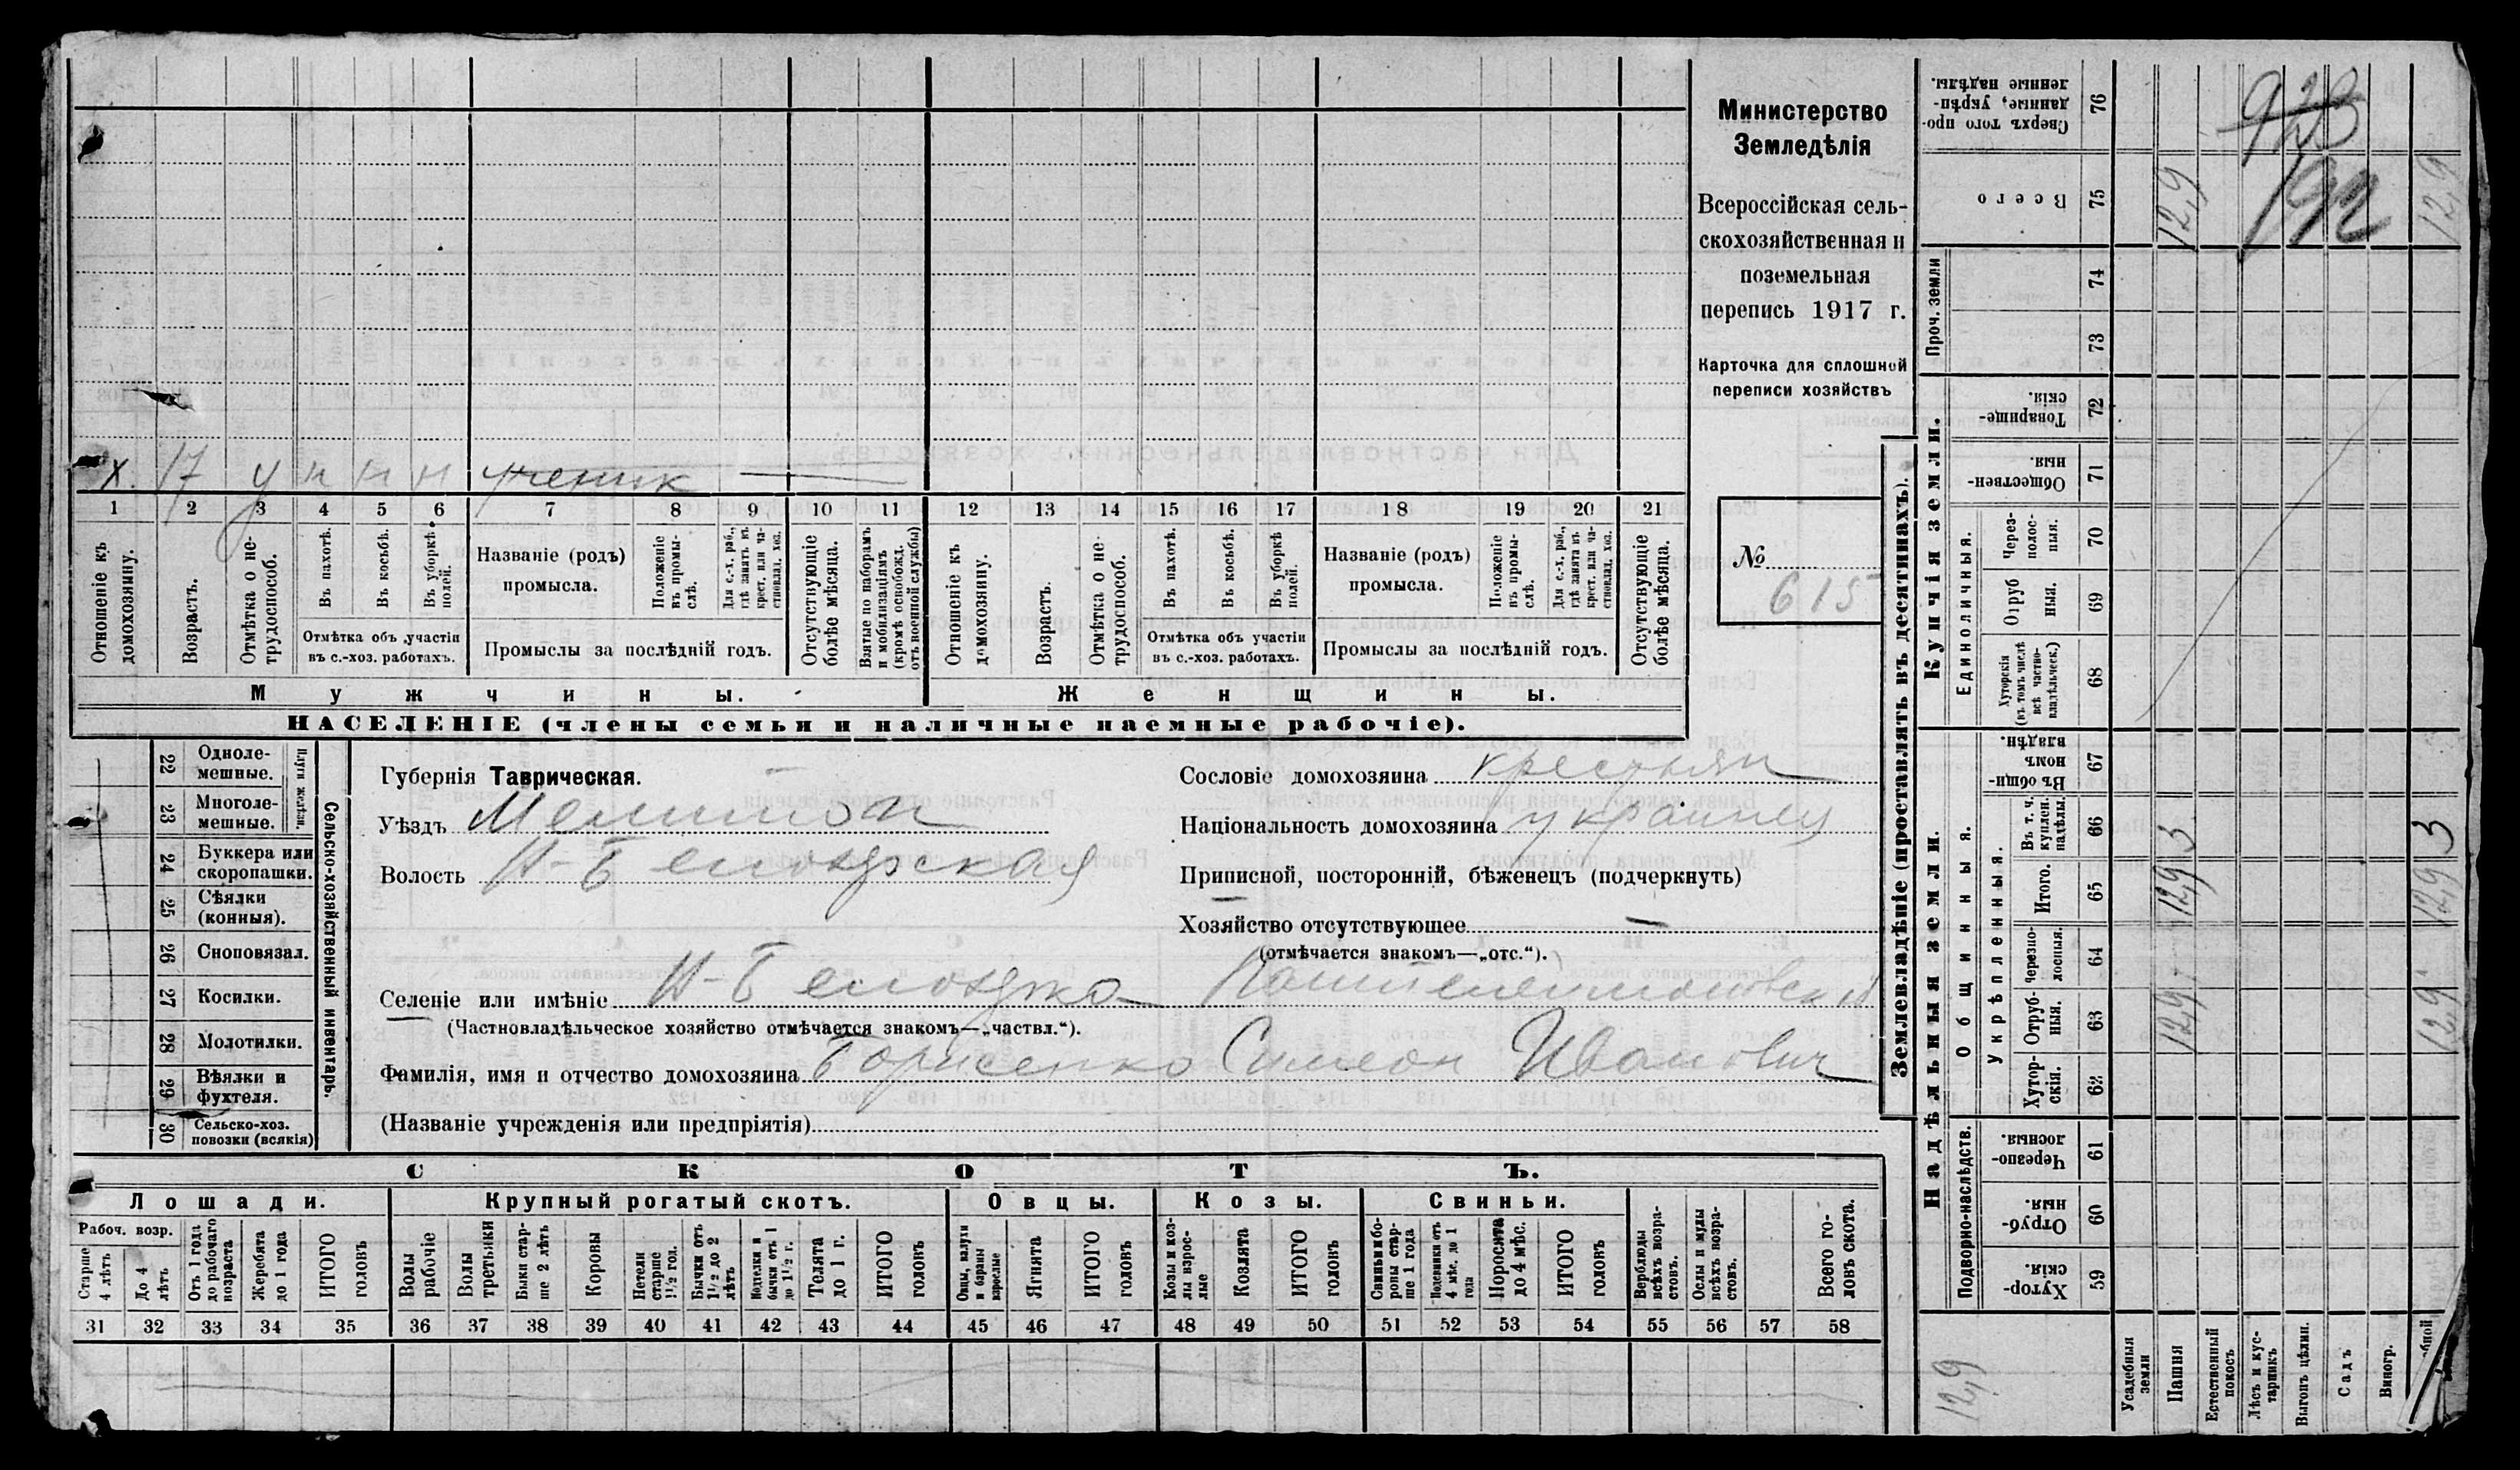 Министерство
Земледѣлія
Всероссійская сель-
скохозяйственная и
поземельная
перепись 1917 г.
Карточка для сплошной
переписи хозяйствъ
№
615
х. 17 у н н н ученик
1 2 3 4 5 6 7 8 9 10 11 12 13 14 15 16 17 18 19 20 21
Отношеніе къ домохозяину.
Возрастъ.
Отмѣтка о не-трудоспособ.
Въ пахотѣ.
Въ косьбѣ.
Въ уборкѣ полей.
Отмѣтка объ участіи
въ с.-хоз. работахъ.
Названіе (родъ)
промысла.
Положеніе въ промы-слѣ.
Для с.-х. раб., гдѣ занятъ въ крест. или ча-стновлад. хоз.
Промыслы за послѣдній годъ.
Отсутствующіе болѣе мѣсяца.
Взятые по наборамъ и мобилизаціямъ (кромѣ освобожд. отъ военной службы)
Отношеніе къ домохозяину.
Возрастъ.
Отмѣтка о не-трудоспособ.
Въ пахотѣ.
Въ косьбѣ.
Въ уборкѣ полей.
Отмѣтка объ участіи
въ с.-хоз. работахъ.
Названіе (родъ)
промысла.
Положеніе въ промы-слѣ.
Для с.-х. раб., гдѣ занята въ крест. или ча-стновлад. хоз.
Промыслы за послѣдній годъ.
Отсутствующіе болѣе мѣсяца.
Мужчины.
Женщины.
НАСЕЛЕНІЕ (члены семьи и наличные наемные рабочіе).
22 Одноле-мешные.
23 Многоле-мешные.
Плуги желѣзн.
24 Буккера или скоропашки.
25 Сѣялки (конныя).
26 Сноповязал.
27 Косилки.
28 Молотилки.
29 Вѣялки и фухтеля.
30 Сельско-хоз. повозки (всякія)
Сельско-хозяйственный инвентарь.
Губернія Таврическая.
Уѣздъ Мелитоп
Волость Н-Белозерская
Сословіе домохозяина крестьян
Національность домохозяина украинец
Приписной, посторонній, бѣженецъ (подчеркнуть)
Хозяйство отсутствующее —
(отмѣчается знакомъ—„отс.“).
Селеніе или имѣніе Н-Белозерка
(Частновладѣльческое хозяйство отмѣчается знакомъ—„частвл.“).
Фамилія, имя и отчество домохозяина Борисенко Симеон Иванович
(Названіе учрежденія или предпріятія)
СКОТЪ.
Лошади.
Крупный рогатый скотъ.
Овцы.
Козы.
Свиньи.
Рабоч. возр.
Старше 4 лѣтъ
До 4 лѣтъ
Отъ 1 года до рабочаго возраста
Жеребята до 1 года
ИТОГО головъ
Волы рабочіе
Волы третьяки
Быки стар-ше 2 лѣтъ
Коровы
Нетели старше 1½ год.
Бычки отъ 1½ до 2 лѣтъ
Подтелки и бычки отъ 1 до 1½ г.
Телята до 1 г.
ИТОГО головъ
Овцы, валухи и бараны взрослые
Ягнята
ИТОГО головъ
Козы и коз-лы взрос-лые
Козлята
ИТОГО головъ
Свиньи и бо-ровы стар-ше 1 года
Подсвинки отъ 4 мѣс. до 1 года
Поросята до 4 мѣс.
ИТОГО головъ
Верблюды всѣхъ возра-стовъ.
Ослы и мулы всѣхъ возра-стовъ.
Всего го-ловъ скота.
31 32 33 34 35 36 37 38 39 40 41 42 43 44 45 46 47 48 49 50 51 52 53 54 55 56 57 58
Землевладѣніе (проставлять въ десятинахъ).
Надѣльныя земли.
Купчія земли.
Проч. земли
Подворно-наслѣдств.
Общинныя.
Укрѣпленныя.
Единоличныя.
Сверхъ того про-данные, укрѣп-ленные надѣлы. 76
Всего 75 12,9 12,9
74
73
Товарище-скія. 72
Обществен-ныя. 71
Через-полос-ныя. 70
Отруб ныя. 69
Хуторскія (въ томъ числѣ всѣ частно-владѣльческ.) 68
Въ общи-номъ владѣн. 67
Въ т. ч. куплен. надѣлы. 66 3 3
Итого. 65 12,9 12,9
Черезпо-лосныя. 64
Отруб-ныя. 63 12,9 12,9
Хутор-скія. 62
Черезпо-лосныя. 61
Отруб-ныя. 60
Хутор-скія. 59
12,9
Усадебныя земли
Пашня
Естественный покосъ
Лѣсъ и кус-тарникъ
Выгонъ цѣлин.
Садъ
Виногр.
923
192